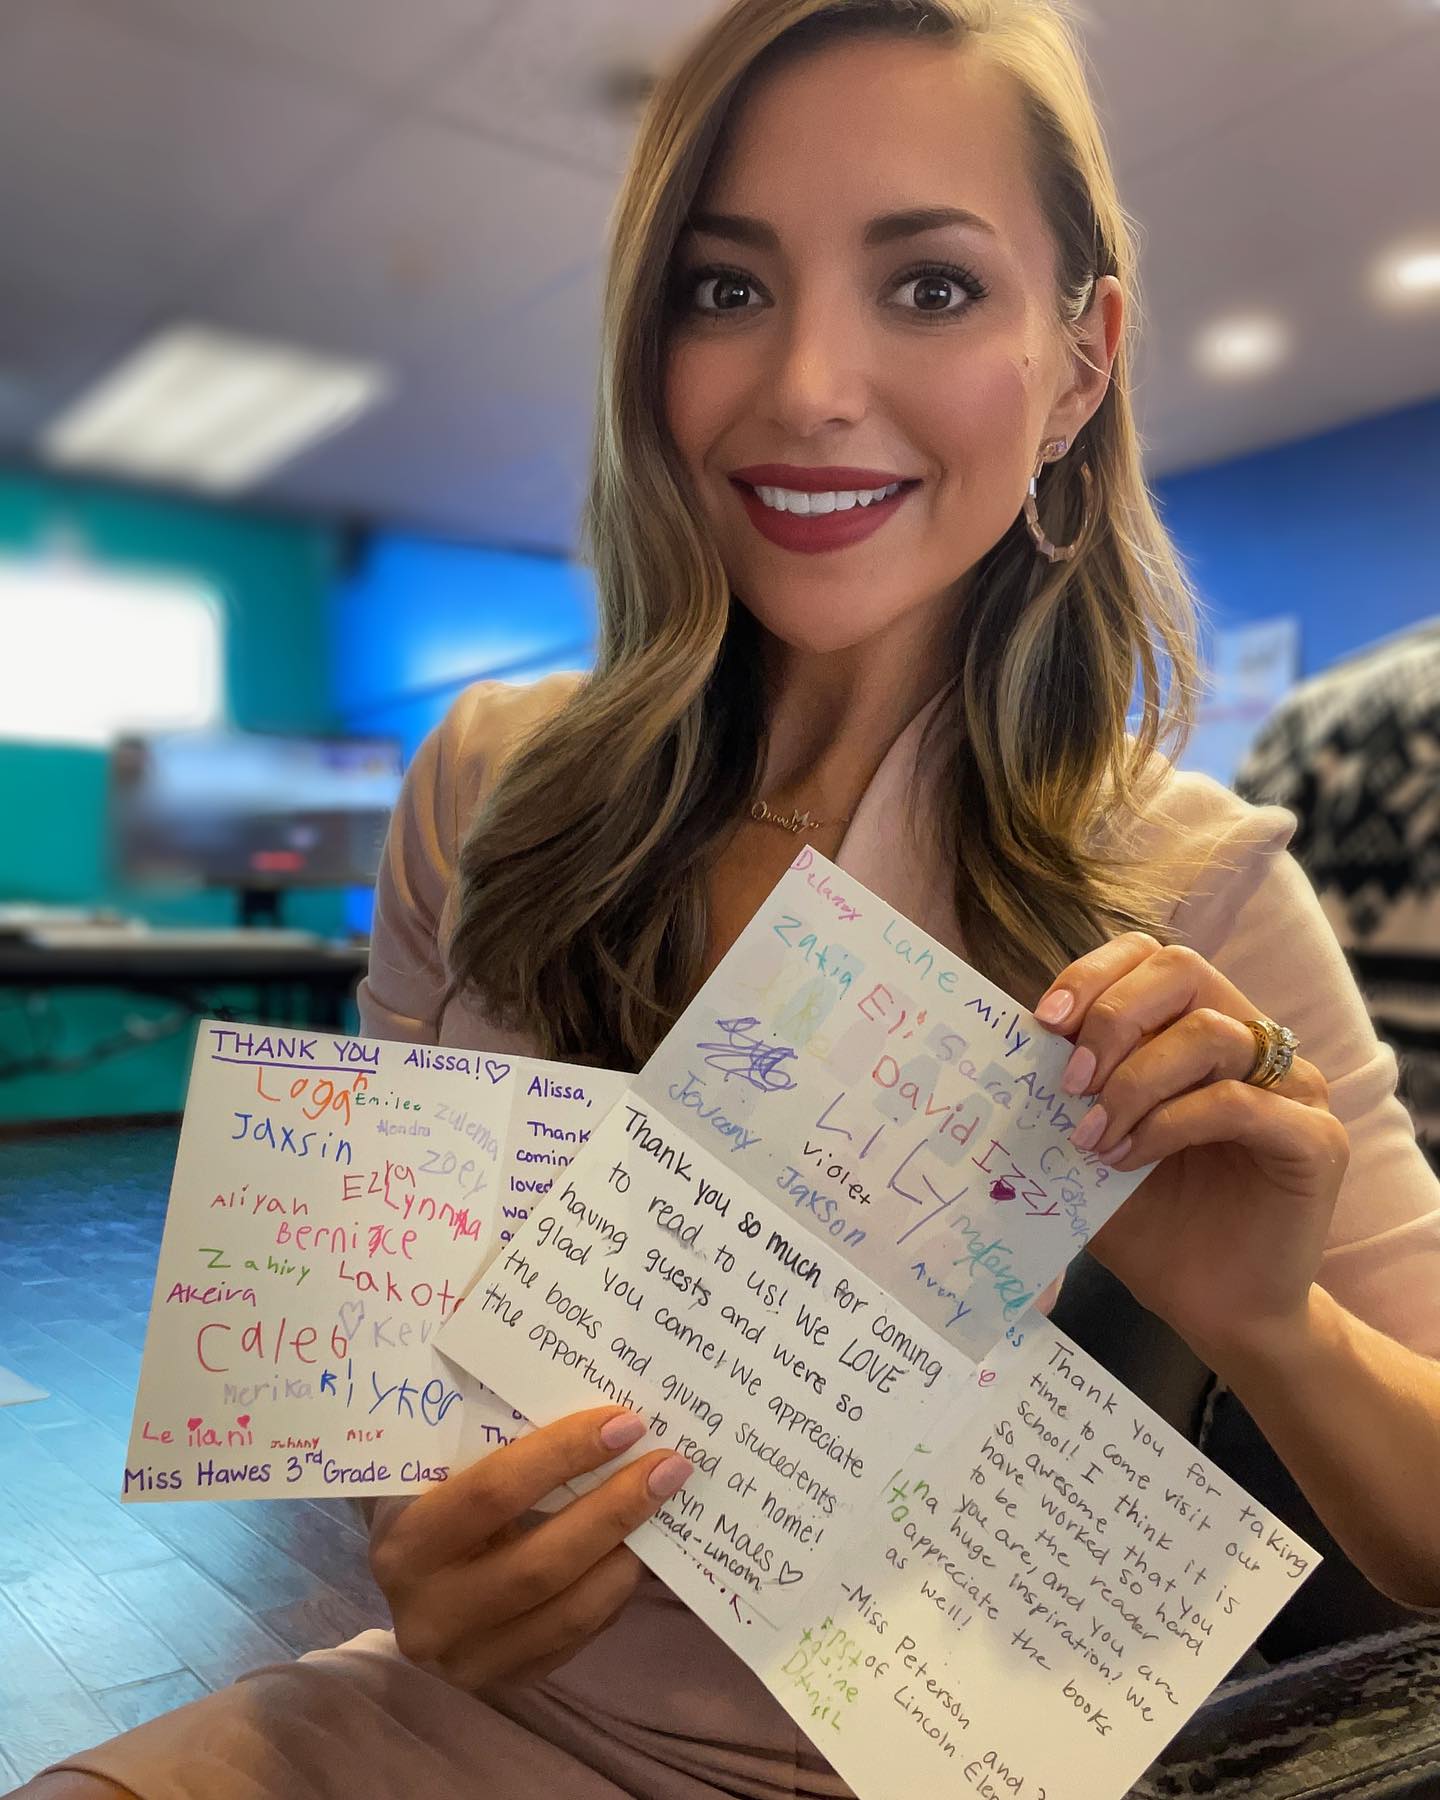 THANK YOU Alissa!♡
Logan
Emilee
Jaxsin
Zulema
Zoey
Ezra
Lynnea
Aliyah
Bernice
Zahivy
Lakot
Akeira
Caleb
Kev
Merika
Rlyker
Leilani
Johnny
Alex
Miss Hawes 3rd Grade Class
Alissa,
Thank
coming
loved
wa
Th
Delanox
Lane
Zakia
Mily
Eli
Sara
Aubr
David
Izzy
LiLY
Violet
Jovany
Jaxson
Avery
Thank you so much for coming
to read to us! We LOVE
having guests and were so
glad you came! We appreciate
the books and giving studedents
the opportunity to read at home!
ryn Maes ♡
Grade-Lincoln
Thank you for taking
time to come visit our
school! I think it is
so awesome that you
have worked so hard
to be the reader
you are, and you are
a huge inspiration! We
appreciate the books
as well!
-Miss Peterson and
of Lincoln Elem